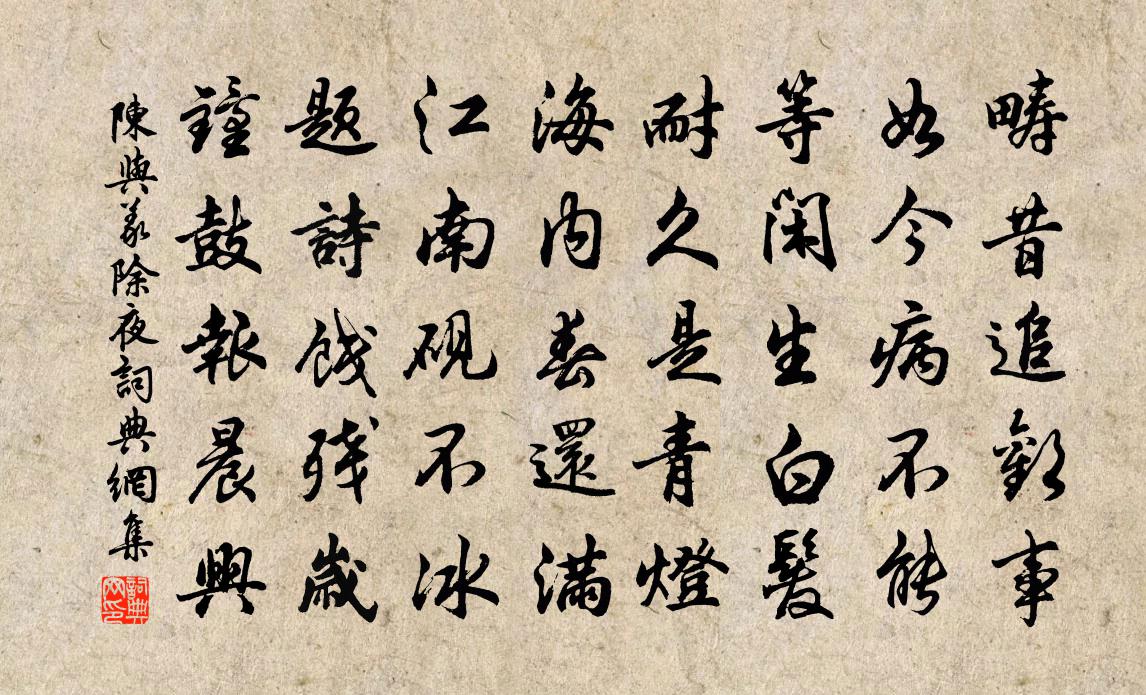 疇昔追歡事
如今病不能
等閑生白髮
耐久是青燈
海内春還滿
江南硯不冰
題詩餞殘歲
鐘鼓報晨興
陳與義除夜詞典網集
詞典網印